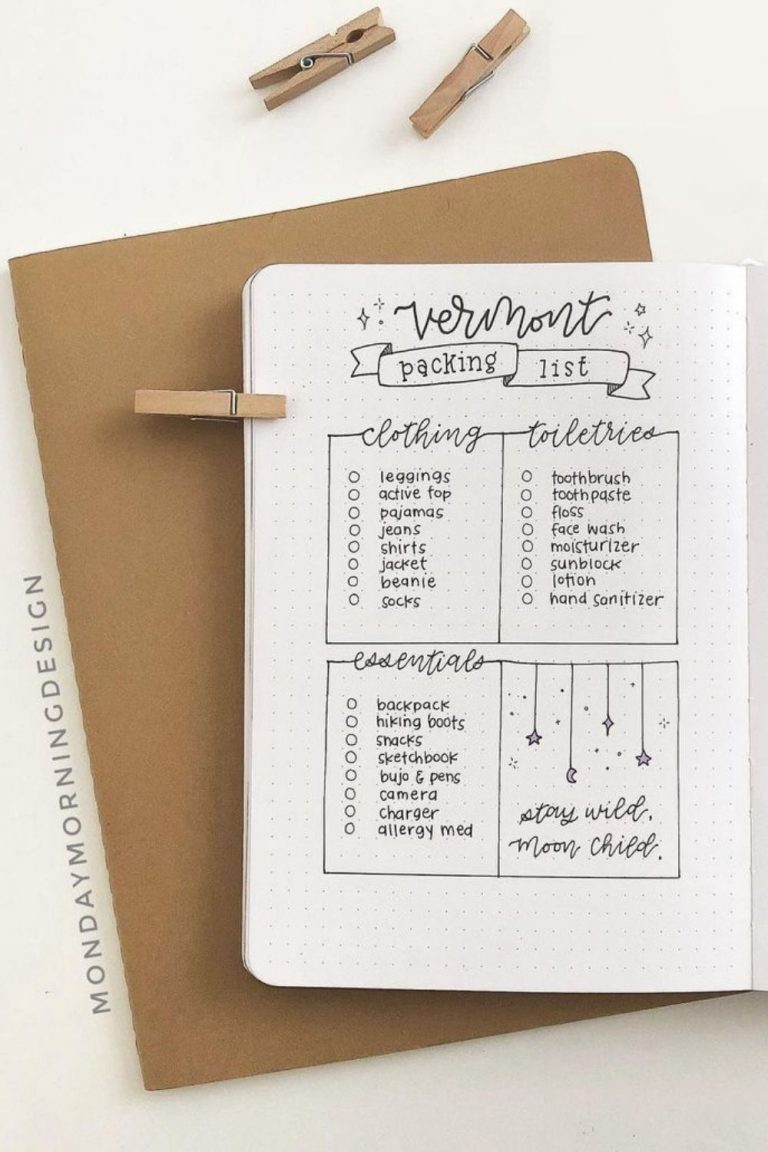 vermont
packing list
clothing
leggings
active top
pajamas
jeans
shirts
jacket
beanie
socks
toiletries
toothbrush
toothpaste
floss
face wash
moisturizer
sunblock
lotion
hand sanitizer
essentials
backpack
hiking boots
snacks
sketchbook
bujo & pens
camera
charger
allergy med
stay wild,
moon child.
MONDAYMORNINGDESIGN